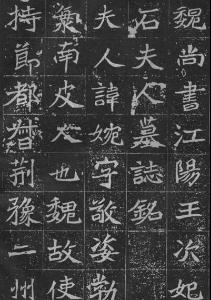 魏尚書江陽王次妃
石夫人墓誌銘
夫人諱婉字敬姿勃
海南皮人也魏故使
持節都督荊豫二州